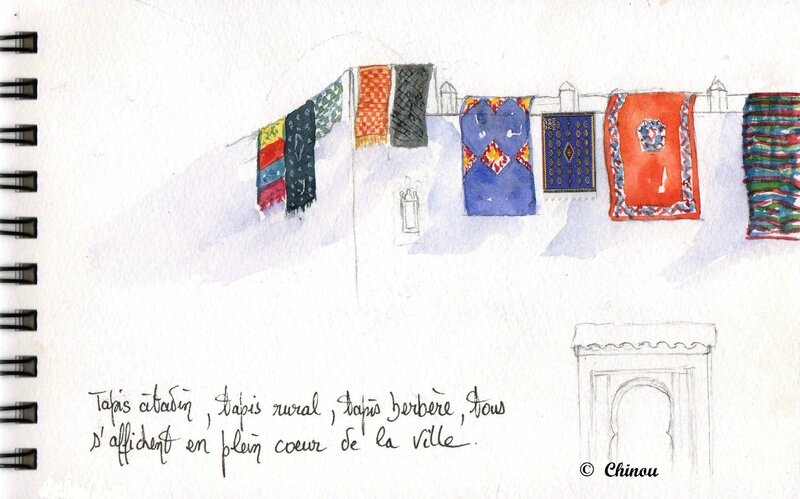 Tapis citadin, tapis rural, tapis berbère, tous
s'affichent en plein coeur de la ville.
© Chinou